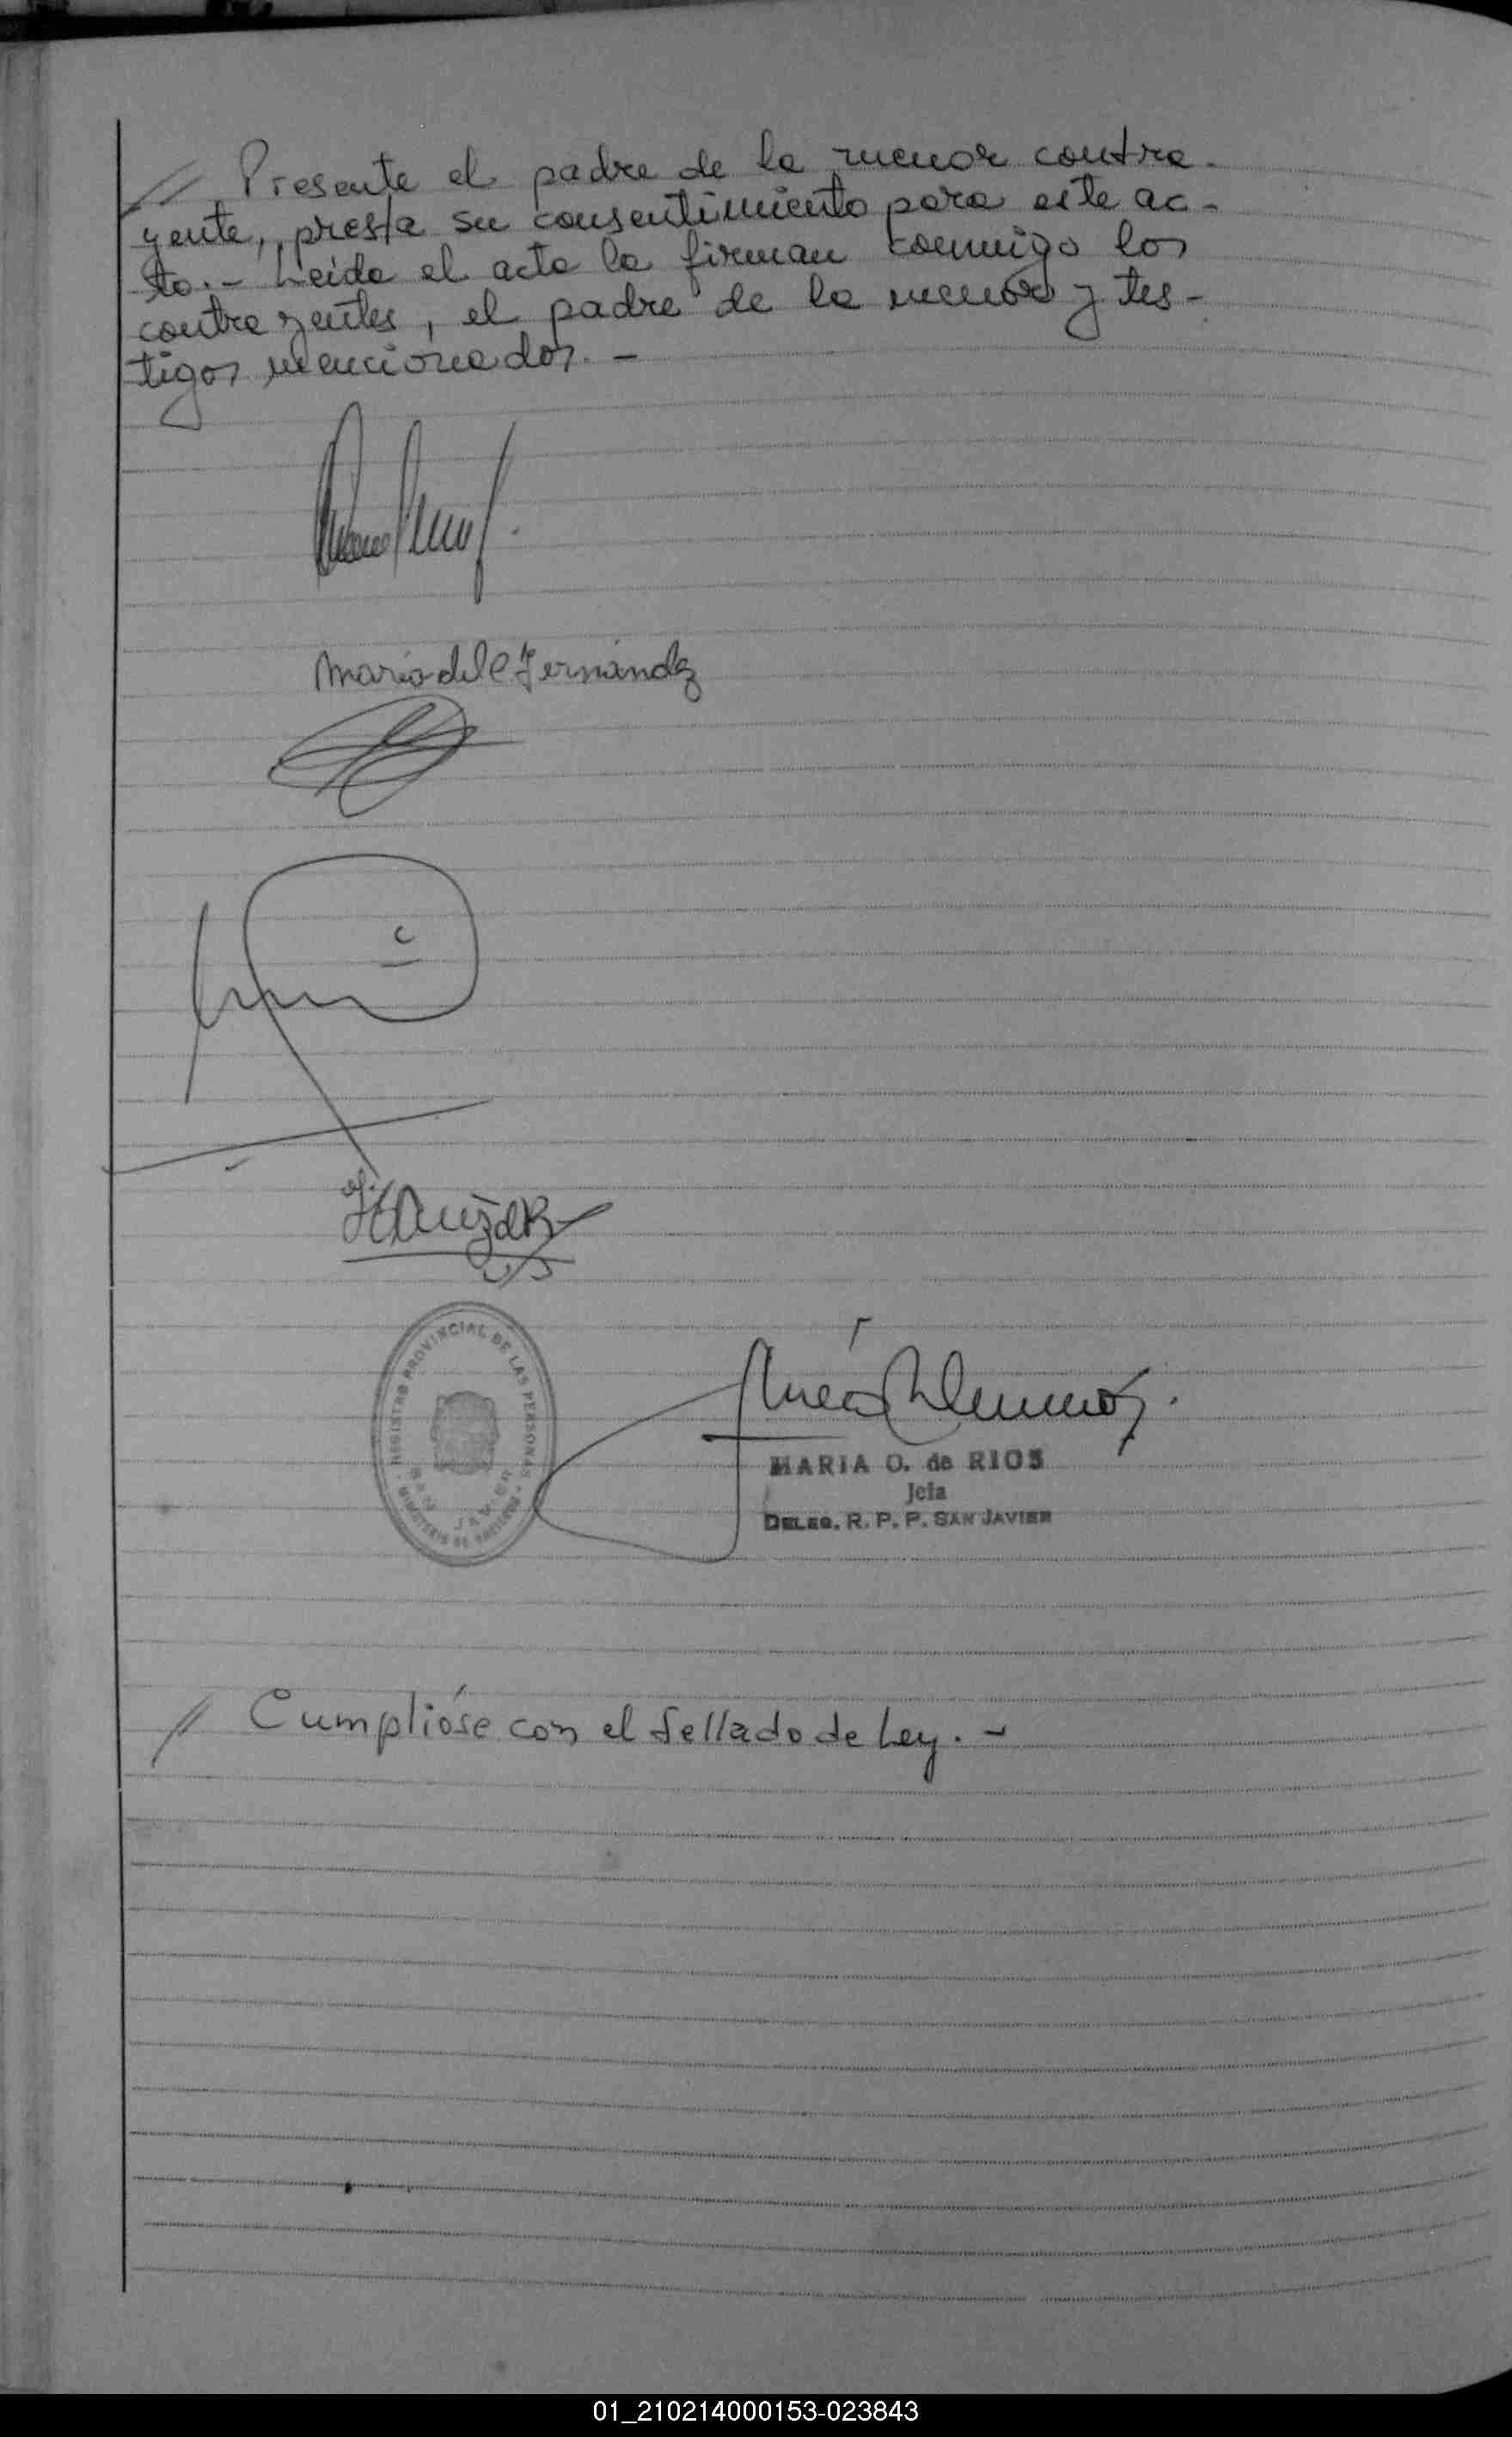 // Presente el padre de la menor contra-
yente, presta su consentimiento para este ac-
to.- Leída el acta la firman conmigo los
contrayentes, el padre de la menor y tes-
tigos mencionados.-
Maria del C Fernández
REGISTRO PROVINCIAL DE LAS PERSONAS
SAN JAVIER
MARIA O. de RIOS
Jefa
DELEG. R. P. P. SAN JAVIER
// Cumplióse con el Sellado de Ley.-
01_210214000153-023843